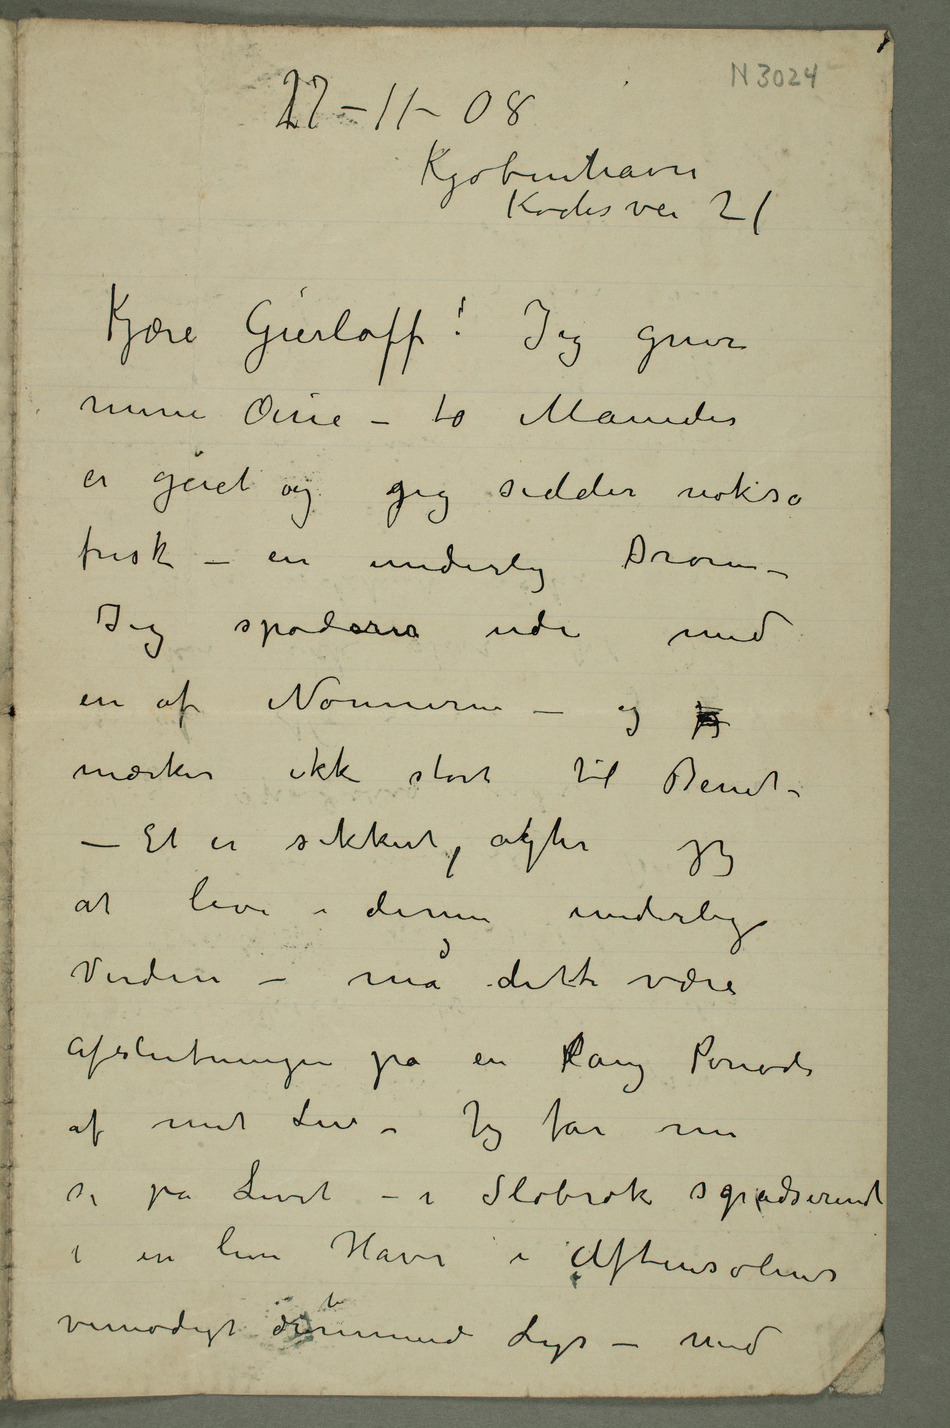 N 3024
27-11-08
Kjøbenhavn
Kochsvei 21
Kjære Gierløff! Jeg gnir
mine Øine – to Maaneder
er gået og jeg sidder nokså
frisk – en underlig Drøm –
Jeg spadserer ude med
en af Nonnerne – og
mærker ikke stort til Benet –
– Et er sikkert, agter jeg
at leve i denne underlige
Verden – må dette være
Afslutningen på en lang Periode
af mit Liv – Jeg får nu
se på Livet – i Slobrok spadserende
i en liden Have i Aftensolens
vemodigt drømmende Lys – med